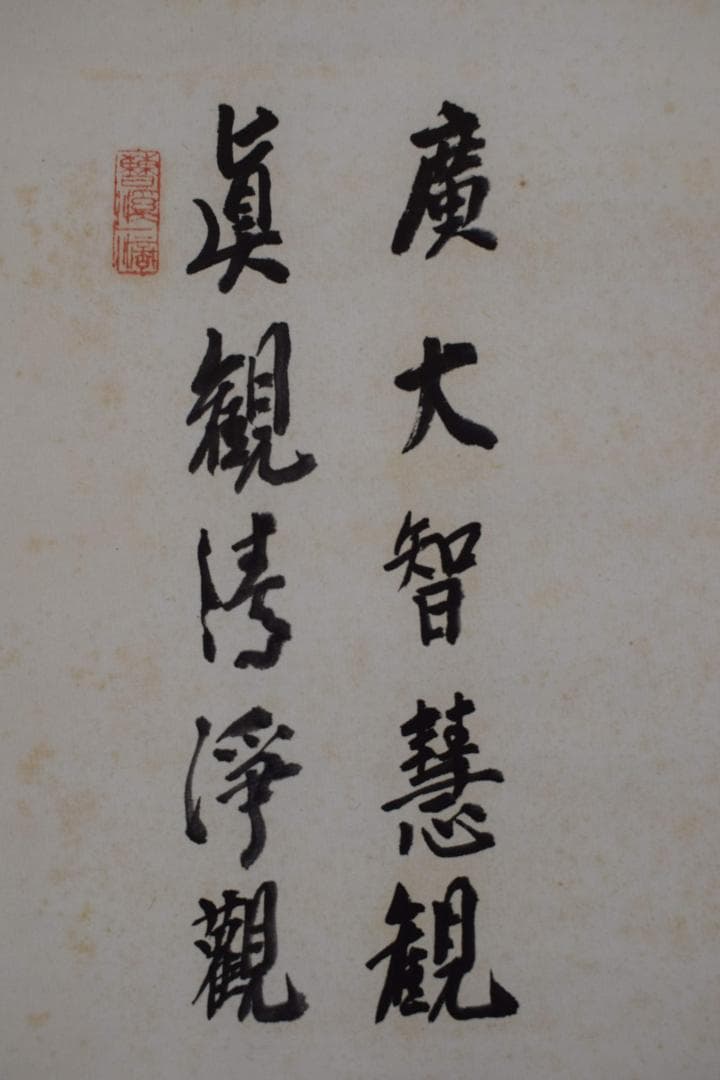 廣大智慧観
眞観清淨觀